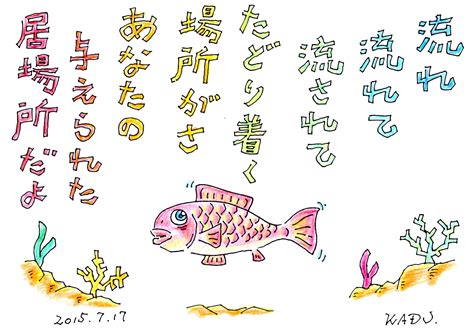 流れ
流れて
流されて
たどり着く
場所がさ
あなたの
与えられた
居場所だよ
2015.7.17
KADU.